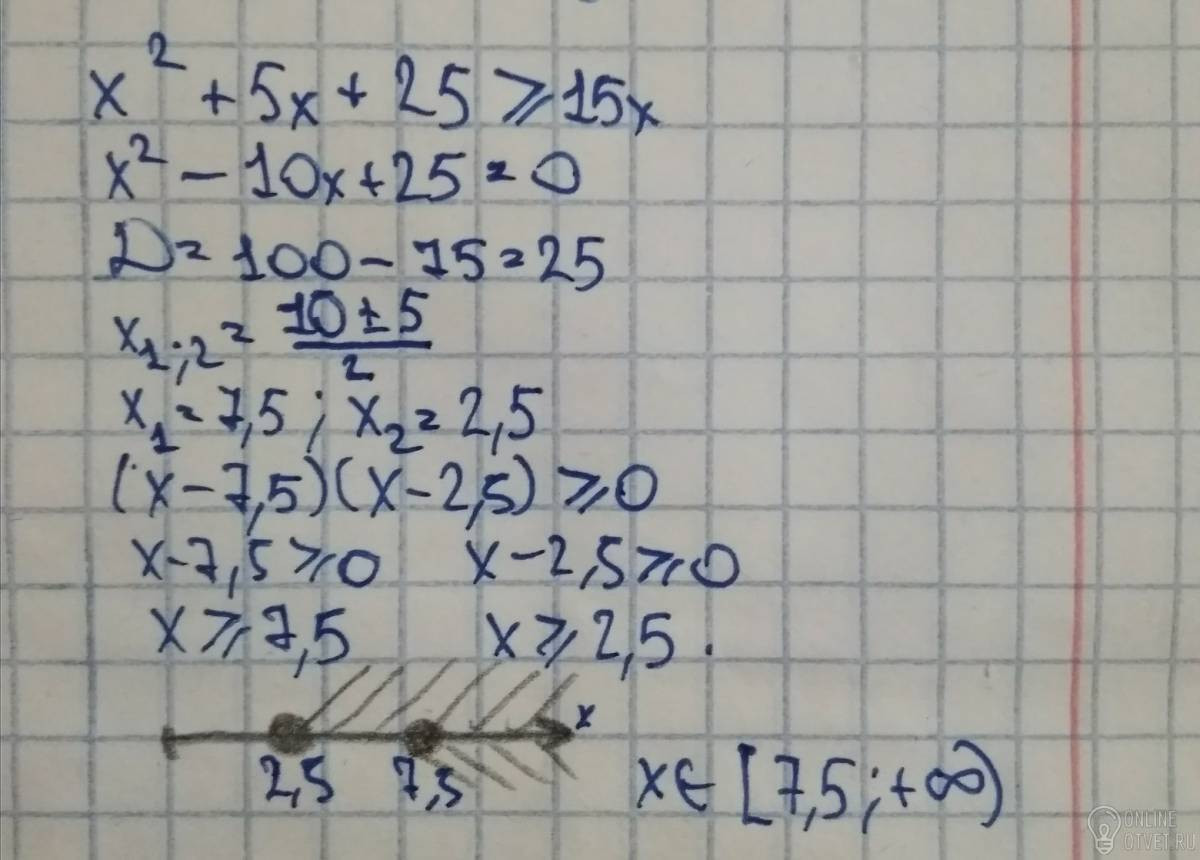 x² + 5x + 25 ⩾ 15x
x² - 10x + 25 = 0
D = 100 - 75 = 25
x₁;₂ = (10 ± 5)/2
x₁ = 7,5 ; x₂ = 2,5
(x - 7,5)(x - 2,5) ⩾ 0
x - 7,5 ⩾ 0 x - 2,5 ⩾ 0
x ⩾ 7,5 x ⩾ 2,5 .
x
2,5 7,5 x ∈ [7,5 ; +∞)
ONLINE
OTVET.RU